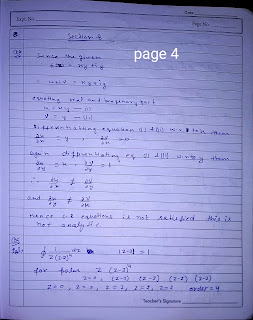 Date
Expt. No.
Page No.
Section B
page 4
Since the given
f(z) = xy + iy
⇒ u+iv = xy + iy
equating real and imaginary part
u = xy — (I)
v = y — (II)
Differentiating equation (I) & (II) w.r. to x then
∂u/∂x = y , ∂v/∂x = 0
again differentiating eq (I) & (II) w.r. to y then
∂u/∂y = x , ∂v/∂y = 1
∴ ∂u/∂x ≠ ∂v/∂y
and ∂u/∂y ≠ ∂v/∂x
hence C-R equations is not satisfied this is
not analytic
∮ 1/z(z-2)⁴ dz |z-2| = 1
for poles z (z-2)⁴
z=0, (z-2) (z-2) (z-2) (z-2)
order = 4
Teacher's Signature